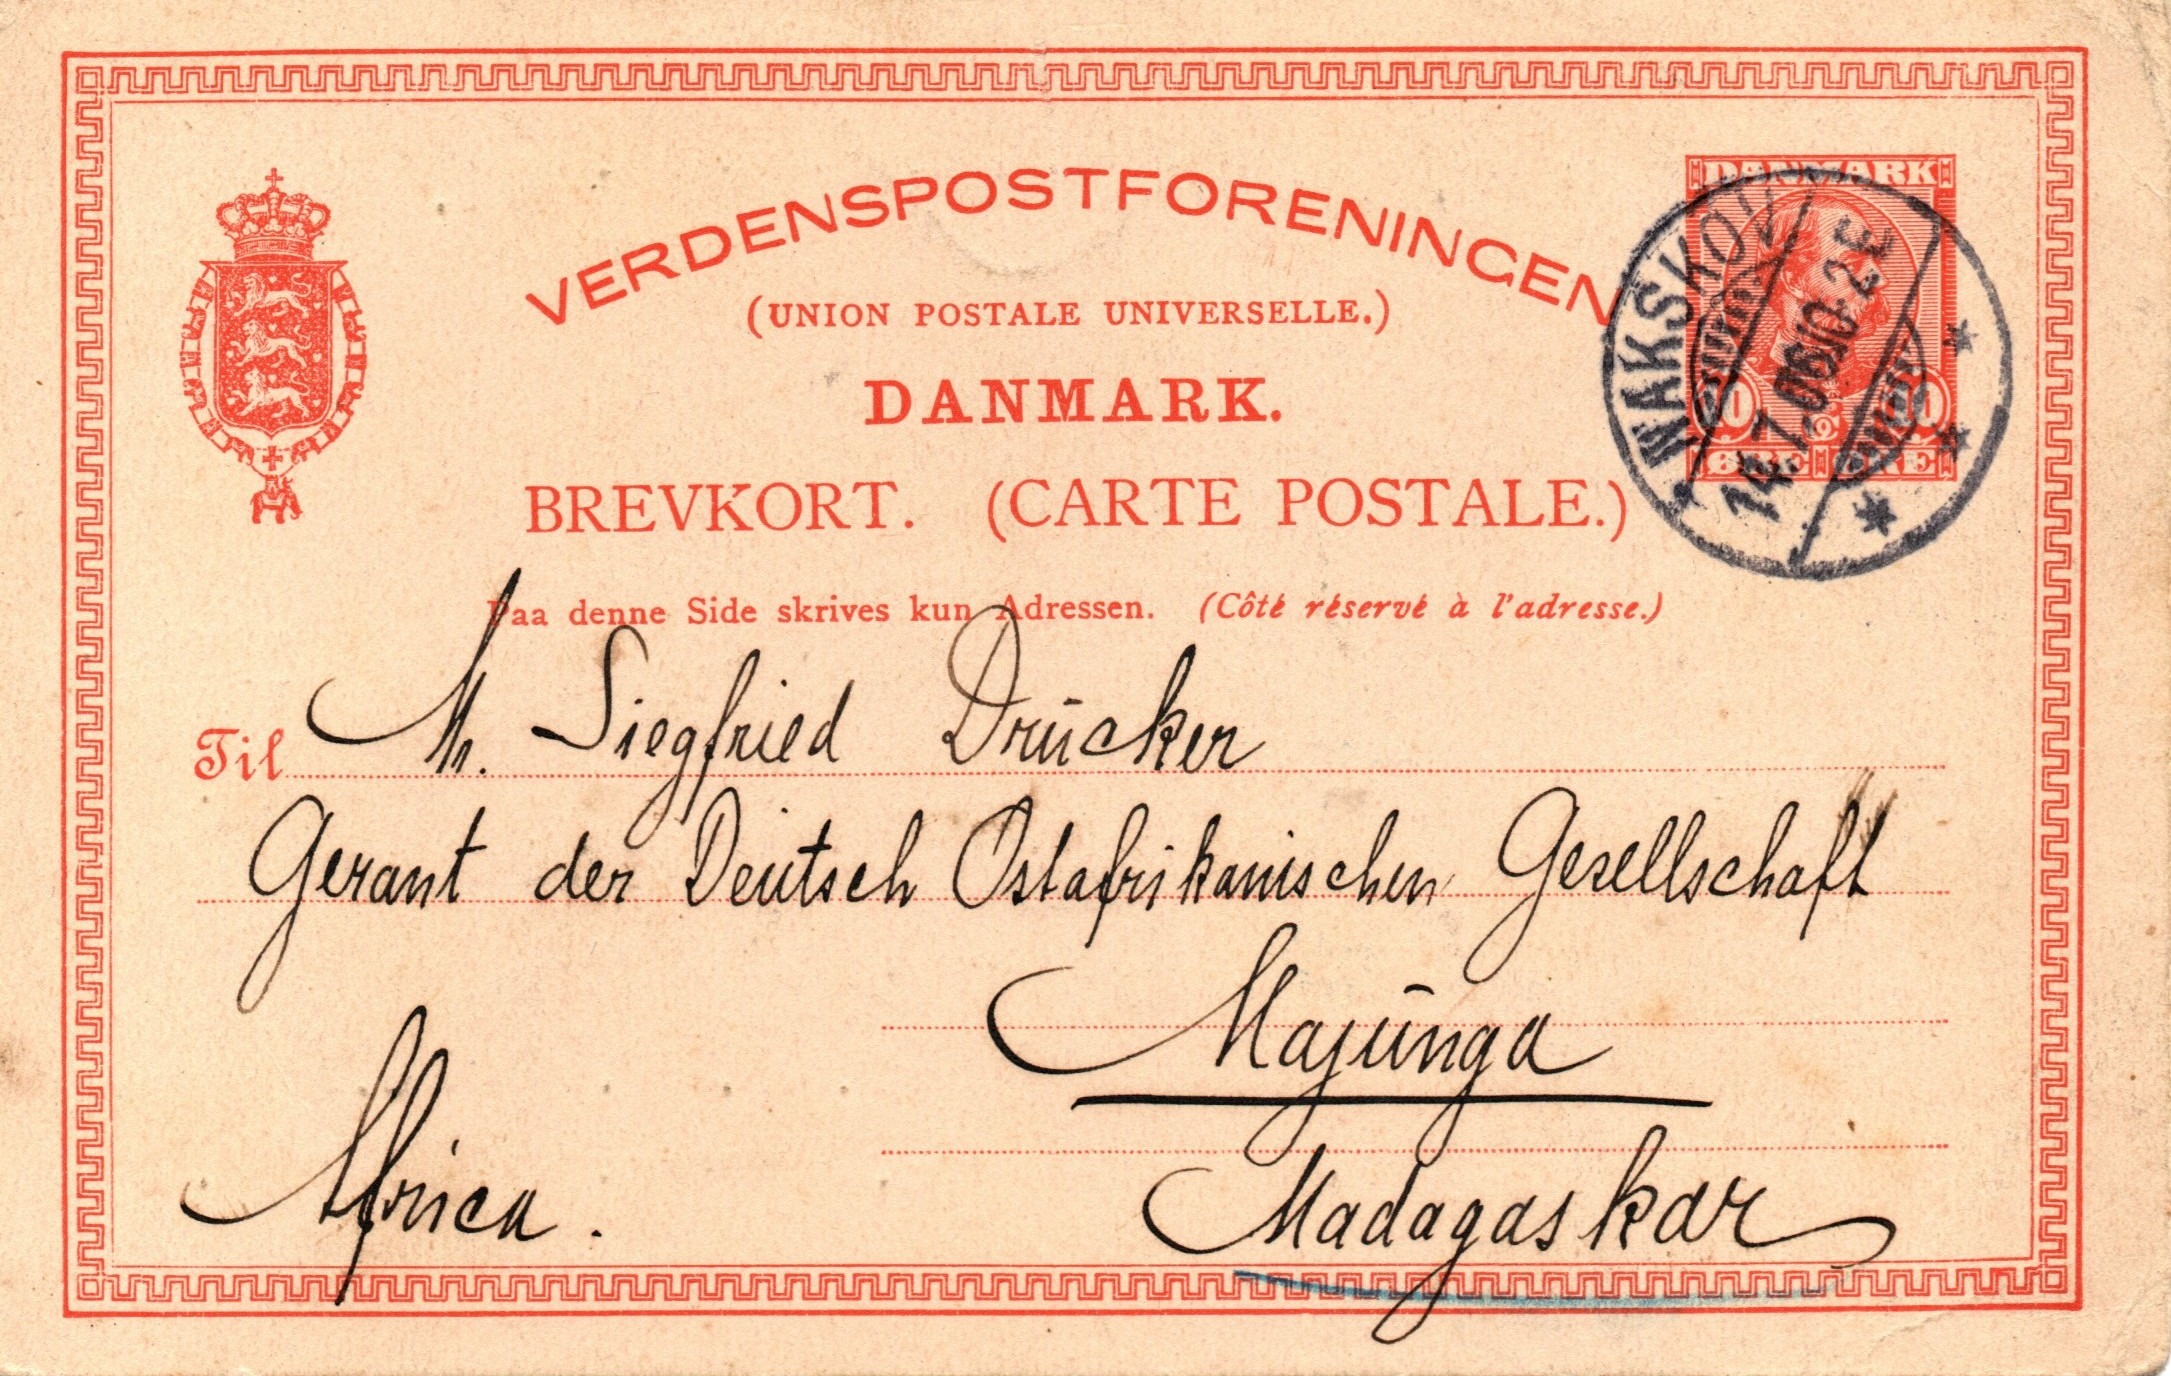 VERDENSPOSTFORENINGEN
(UNION POSTALE UNIVERSELLE.)
DANMARK.
BREVKORT. (CARTE POSTALE.)
Paa denne Side skrives kun Adressen. (Côté réservé à l'adresse.)
DANMARK
10 10
ØRE ØRE
14.7.06 10-2E
Til M. Siegfried Drucker
Gerant der Deutsch Ostafrikanischen Gesellschaft
Majunga
Madagaskar
Africa.